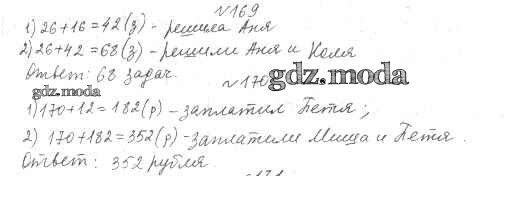 №169
1) 26+16=42(з) - решила Аня
2) 26+42=68(з) - решили Аня и Коля
Ответ: 68 задач.
№170
gdz.moda
gdz.moda
1) 170+12=182(р) - заплатил Петя;
2) 170+182=352(р) - заплатили Миша и Петя.
Ответ: 352 рубля